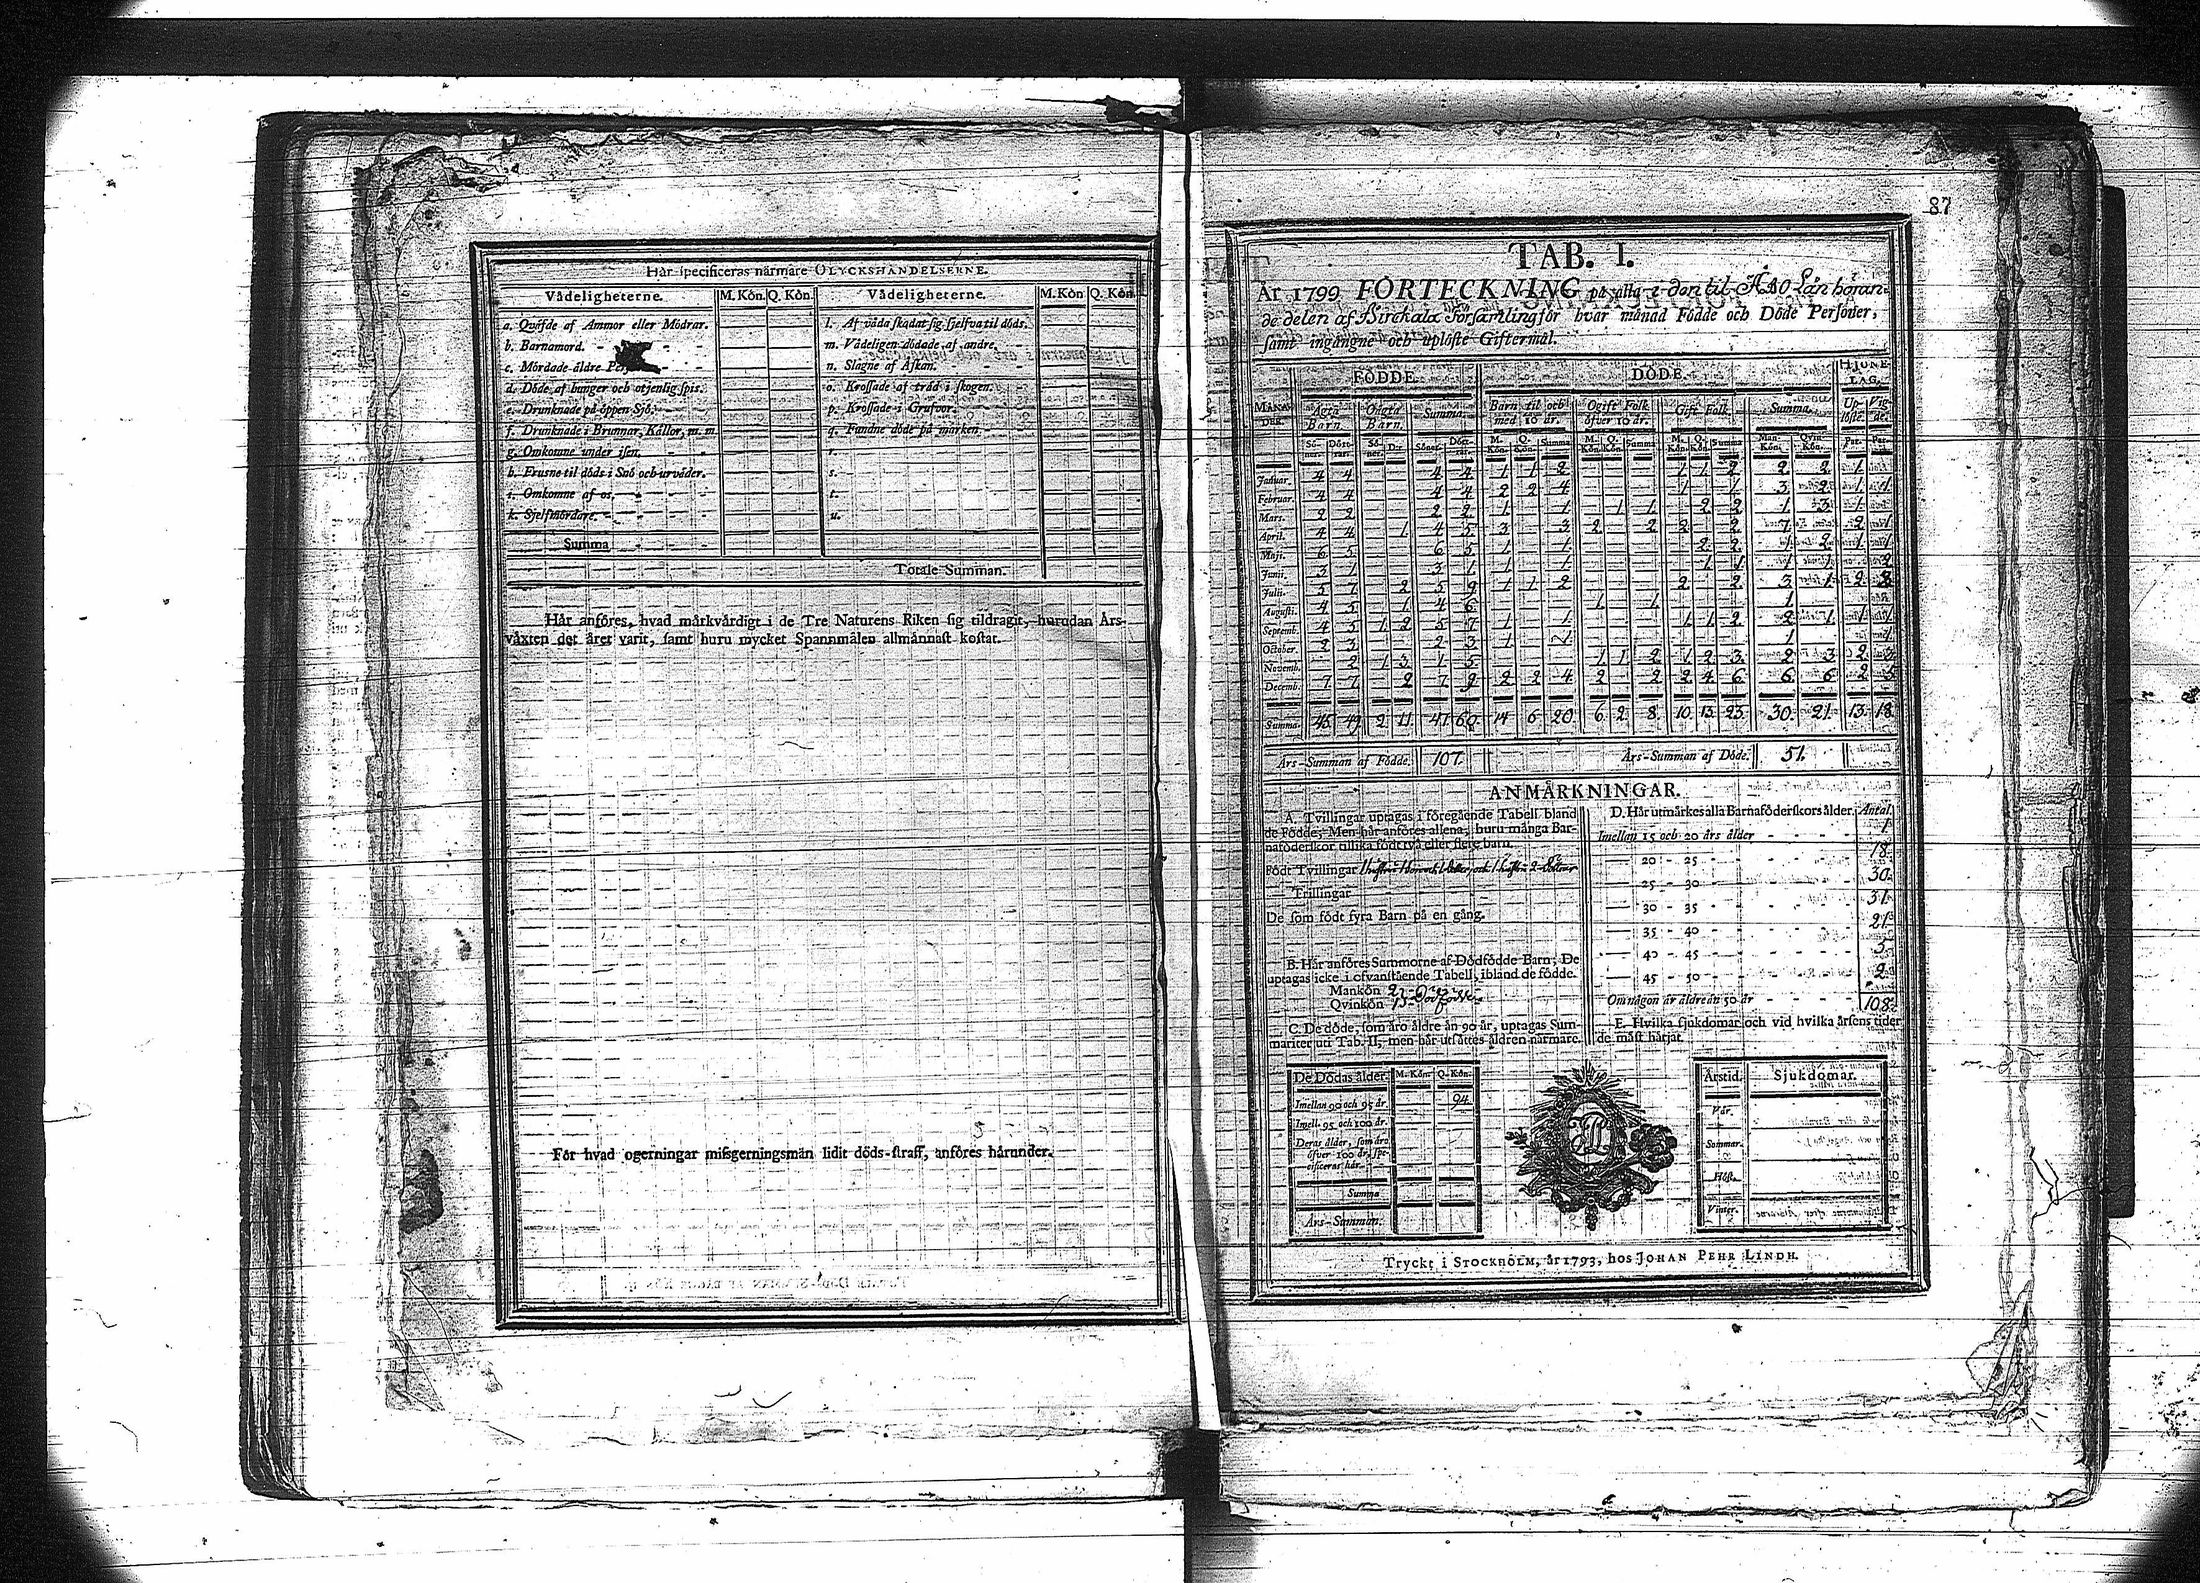 Här specificeras närmare OLYCKSHÄNDELSERNE.
Vådeligheterne. M. Kön. Q. Kön. Vådeligheterne. M. Kön Q. Kön
a. Quäfde af Ammor eller Mödrar. l. Af våda skadat sig sjelfva til döds.
b. Barnamord. m. Vådeligen dödade af andre.
c. Mördade äldre n. Slagne af Åskan.
d. Döde af hunger och otjenlig spis. o. Krossade af träd i skogen.
e. Drunknade på öppen Sjö. p. Krossade i Grufvor.
f. Drunknade i Brunnar, Källor, m. m. q. Fundne döde på marken.
g. Omkomne under isen. r.
h. Frusne til döds i Snö och urväder. s.
i. Omkomne af os. t.
k. Sjelfmördare. u.
Summa
Totale Summan.
Här anföres, hvad märkvärdigt i de Tre Naturens Riken sig tildragit, hurudan Års-
växten det året varit, samt huru mycket Spannmålen allmännast kostat.
För hvad ogerningar missgerningsmän lidit döds-straff, anföres härunder.
87
TAB. I.
År 1799 FÖRTECKNING på alla i den til ÅBO Län höran-
de delen af Birckala Församling för hvar månad Födde och Döde Personer,
samt ingångne och uplöste Giftermål.
FÖDDE. DÖDE. HJONE-LAG.
MÅNADER. Ägta Barn. Oägta Barn. Summa. Barn til och med 10 år. Ogift Folk öfver 10 år. Gift Folk. Summa. Uplöste. Vigde.
Söner. Döttrar. Söner. Dö. Söner. Döttrar. M. Kön. Q. Kön. Summa M. Kön. Q. Kön. Summa M. Kön. Q. Kön. Summa Man-Kön. Qvin-Kön. Par. Par.
Januar. 4 4 4 4 1 1 2 1 1 2 2 2 1
Februar. 4 4 4 4 2 2 4 1 1 3 2 1 1
Mars. 2 2 2 2 1 1 1 1 2 2 1 3 1
April. 4 4 1 4 5 3 3 2 2 2 2 7 2 1
Maji. 6 5 6 5 1 1 2 2 1 2 1 1
Junii. 3 1 3 1 1 1 1 1 1 1 2
Julii. 5 7 2 5 9 1 1 2 2 2 3 1 2 2
Augusti. 4 5 1 4 6 1 1 1
Septemb. 4 5 1 2 5 7 1 1 1 1 2 2 1 1 1
October. 2 3 2 3 1 1 1
Novemb. 2 1 3 1 5 1 1 2 1 2 3 2 3 2 3
Decemb. 7 7 2 7 9 2 2 4 2 2 2 4 6 6 6 2 5
Summa 45 49 2 11 47 60 14 6 20 6 2 8 10 13 23 30 21 13 18
Års-Summan af Födde. 107. Års-Summan af Döde. 51.
ANMÄRKNINGAR.
A. Tvillingar uptagas i föregående Tabell bland
de Födde; Men här anföres allena, huru många Bar-
naföderskor tillika födt två eller flere barn.
Födt Tvillingar
Trillingar
De som födt fyra Barn på en gång.
B. Här anföres Summorne af Dödfödde Barn; De
uptagas icke i ofvanstående Tabell, ibland de födde.
Mankön 2
Qvinkön
C. De döde, som äro äldre än 90 år, uptagas Sum-
mariter uti Tab. II, men här utsättes åldren närmare.
De Dödas ålder. M. Kön Q. Kön.
Imellan 90 och 95 år. 94
Imell. 95 och 100 år.
Deras ålder, som äro
öfver 100 år, spe-
cificeras här.
Summa
Års-Summan.
D. Här utmärkes alla Barnaföderskors ålder. Antal
Imellan 15 och 20 års ålder 1
20 - 25 18
25 - 30 30
30 - 35 31
35 - 40 21
40 - 45 5
45 - 50 2
Om någon är äldre än 50 år
108
E. Hvilka sjukdomar och vid hvilka årsens tider
de mäst härjat.
Årstid. Sjukdomar.
Vår.
Sommar.
Höst.
Vinter.
Tryckt i STOCKHOLM, år 1793, hos JOHAN PEHR LINDH.